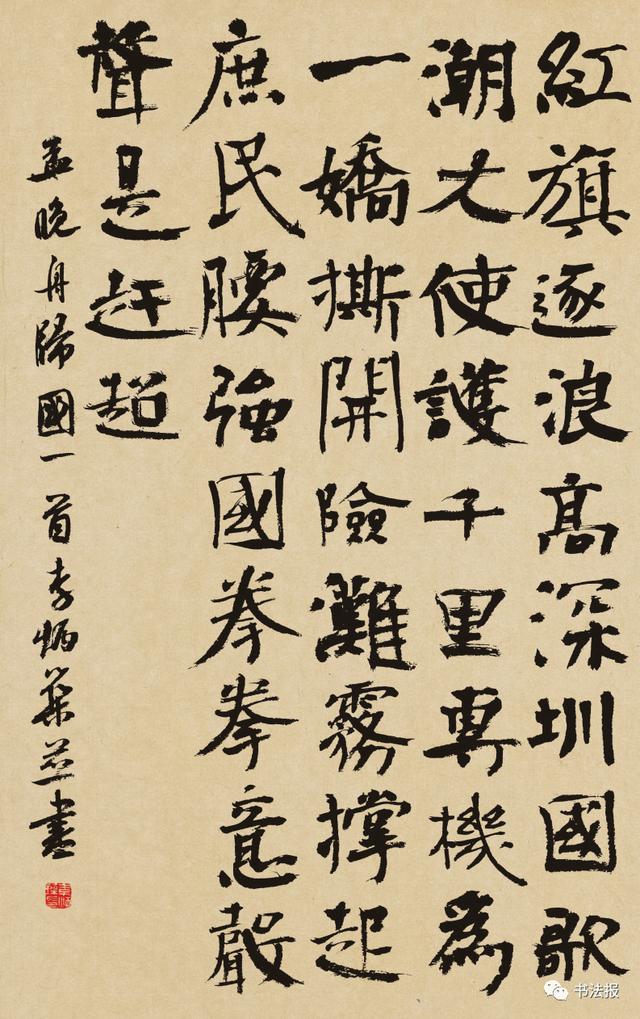 紅旗逐浪高深圳國歌
潮大使護千里專機為
一嬌撕開險灘霧撐起
庶民腰強國拳拳意聲
聲是赶超
孟晚舟歸國一首李炳葉并書
书法报